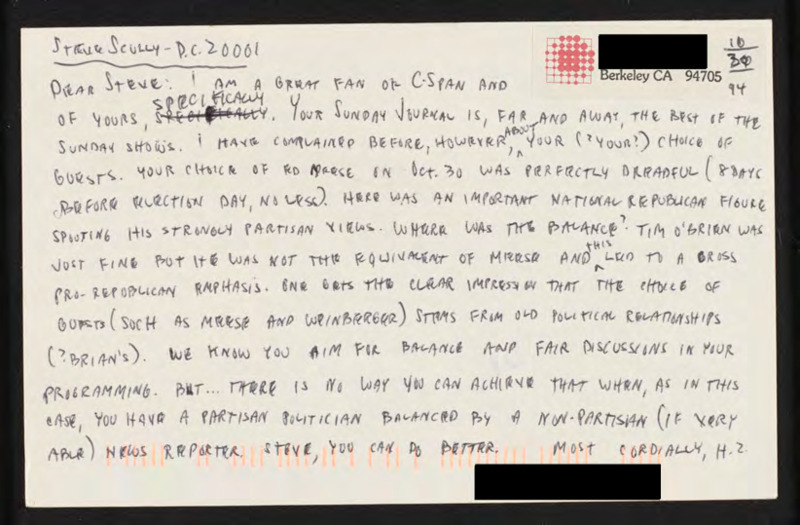 STEVE SCULLY - D.C. 20001
Berkeley CA 94705
10
30
94
DEAR STEVE: I AM A GREAT FAN OF C-SPAN AND
OF YOURS, SPECIFICALLY. YOUR SUNDAY JOURNAL IS, FAR AND AWAY, THE BEST OF THE
SUNDAY SHOWS. I HAVE COMPLAINED BEFORE, HOWEVER, ABOUT YOUR (?YOUR?) CHOICE OF
GUESTS. YOUR CHOICE OF ED MEESE ON OCT. 30 WAS PERFECTLY DREADFUL (8 DAYS
BEFORE ELECTION DAY, NO LESS). HERE WAS AN IMPORTANT NATIONAL REPUBLICAN FIGURE
SPOUTING HIS STRONGLY PARTISAN VIEWS. WHERE WAS THE BALANCE? TIM O'BRIEN WAS
JUST FINE BUT HE WAS NOT THE EQUIVALENT OF MEESE AND THIS LED TO A GROSS
PRO-REPUBLICAN EMPHASIS. ONE GETS THE CLEAR IMPRESSION THAT THE CHOICE OF
GUESTS (SUCH AS MEESE AND WEINBERGER) STEMS FROM OLD POLITICAL RELATIONSHIPS
(?BRIAN'S). WE KNOW YOU AIM FOR BALANCE AND FAIR DISCUSSIONS IN YOUR
PROGRAMMING. BUT... THERE IS NO WAY YOU CAN ACHIEVE THAT WHEN, AS IN THIS
CASE, YOU HAVE A PARTISAN POLITICIAN BALANCED BY A NON-PARTISAN (IF VERY
ABLE) NEWS REPORTER. STEVE, YOU CAN DO BETTER. MOST CORDIALLY, H.Z.